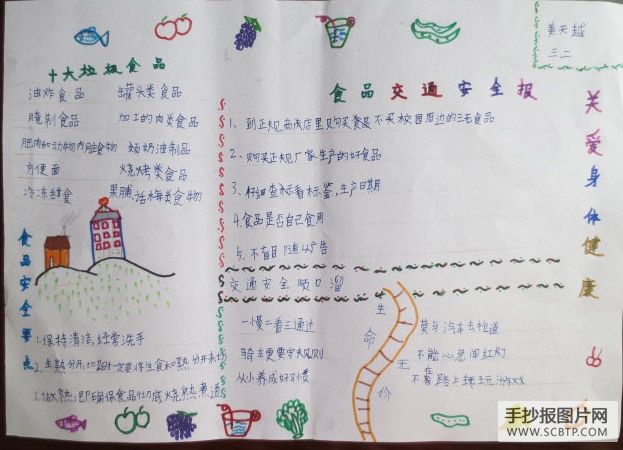 姜天越
三二
十大垃圾食品
油炸食品 罐头类食品
腌制食品 加工的肉类食品
肥肉和动物内脏食物 奶油制品
方便面 烧烤类食品
冷冻甜食 果脯、话梅类食物
食品安全要点
1.保持清洁,经常洗手
2.生熟分开,切菜时一定要将生食和熟分开来
3.做熟:即确保食品彻底烧熟煮透
食品交通安全报
1、到正规商店里购买食品,不买校园周边的三无食品
2、购买正规厂家生产的好食品
3、仔细查标看标签,生产日期
4.食品是否自己食用
5.不盲目随从广告
交通安全顺口溜
一慢二看三通过
骑车更要守规则
从小养成好习惯
生命无价
莫与汽车去抢道
不能心急闯红灯
不在路上把玩游戏
关爱身体健康
手抄报图片网
WWW.SCBTP.COM